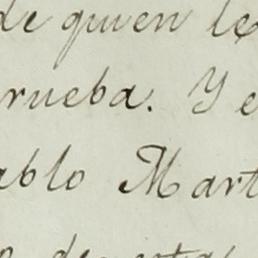 de quien le
rueba. Y e
ablo Mart